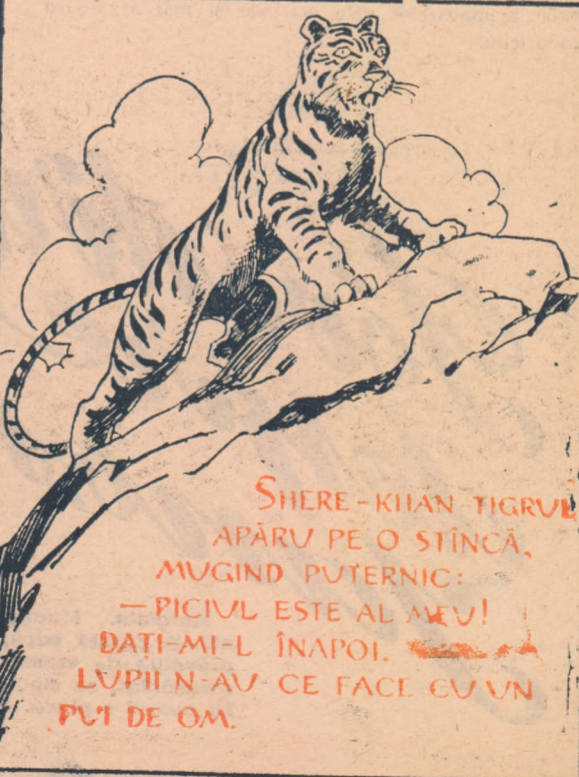 SHERE-KHAN TIGRUL
APĂRU PE O STÎNCĂ,
MUGIND PUTERNIC:
— PICIUL ESTE AL MEU!
DAȚI-MI-L ÎNAPOI.
LUPII N-AU CE FACE CU UN
PUI DE OM.